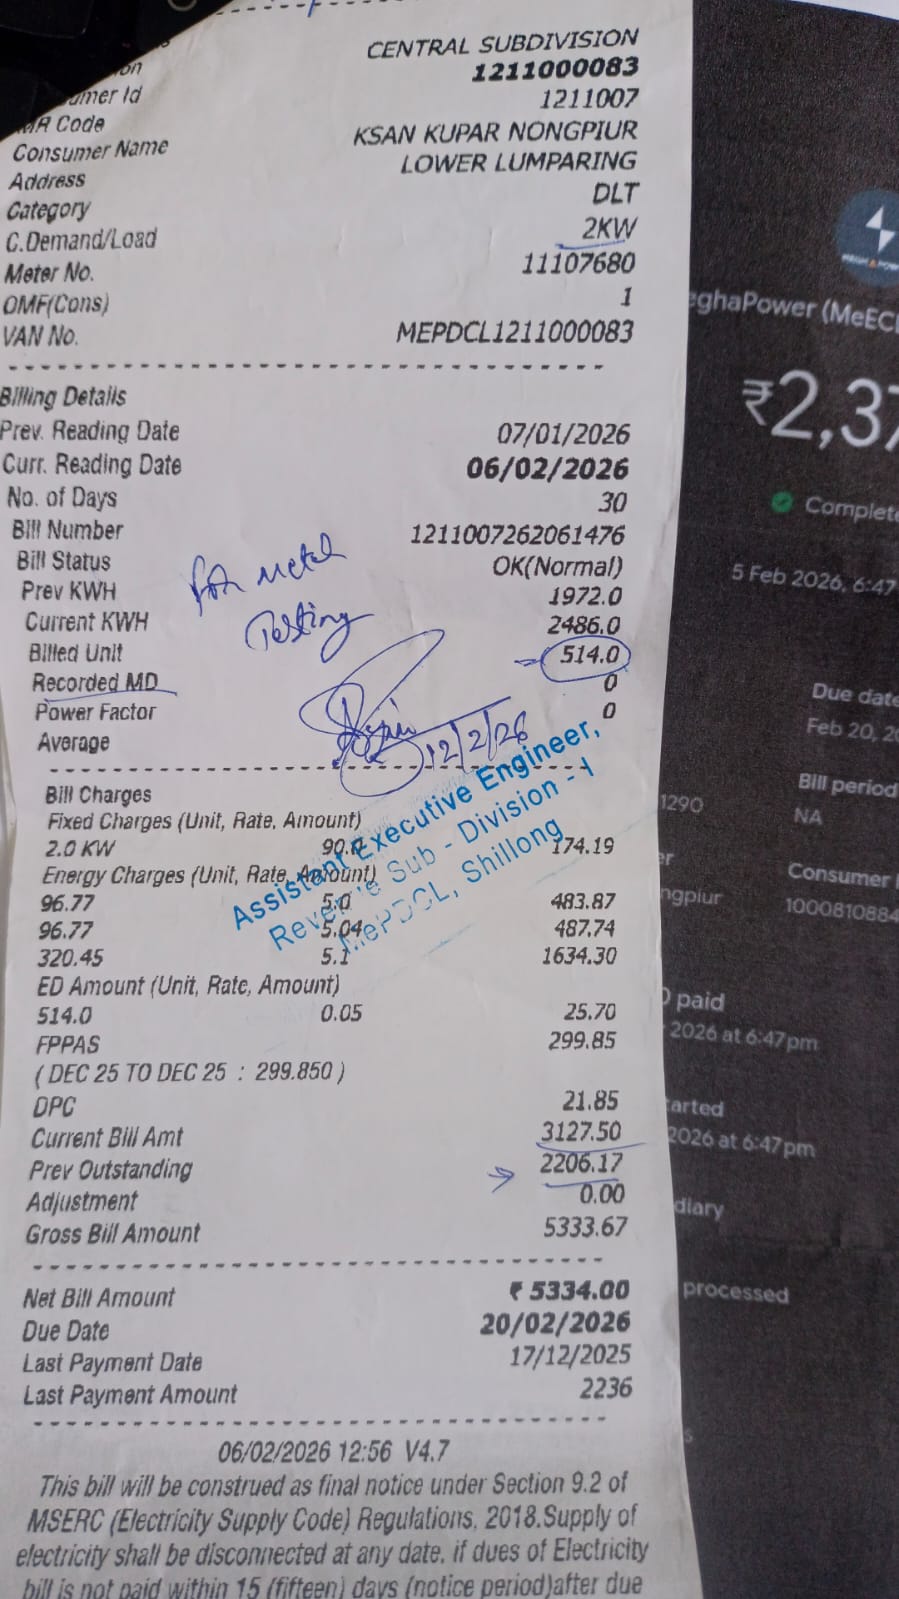 CENTRAL SUBDIVISION
1211000083
umer Id
1211007
MR Code
Consumer Name KSAN KUPAR NONGPIUR
Address LOWER LUMPARING
Category DLT
C.Demand/Load 2KW
Meter No. 11107680
OMF(Cons) 1
VAN No. MEPDCL1211000083
Billing Details
Prev. Reading Date 07/01/2026
Curr. Reading Date 06/02/2026
No. of Days 30
Bill Number 1211007262061476
Bill Status OK(Normal)
Prev KWH 1972.0
Current KWH 2486.0
Billed Unit 514.0
Recorded MD 0
Power Factor 0
Average
for
Testing
12/2/26
Assistant Executive Engineer,
Sub - Division - I
MePDCL, Shillong
Bill Charges
Fixed Charges (Unit, Rate, Amount)
2.0 KW 174.19
Energy Charges (Unit, Rate, Amount)
96.77 5.0 483.87
96.77 5.04 487.74
320.45 5.1 1634.30
ED Amount (Unit, Rate, Amount)
514.0 0.05 25.70
FPPAS 299.85
( DEC 25 TO DEC 25 : 299.850 )
DPC 21.85
Current Bill Amt 3127.50
Prev Outstanding 2206.17
Adjustment 0.00
Gross Bill Amount 5333.67
Net Bill Amount ₹ 5334.00
Due Date 20/02/2026
Last Payment Date 17/12/2025
Last Payment Amount 2236
06/02/2026 12:56 V4.7
This bill will be construed as final notice under Section 9.2 of
MSERC (Electricity Supply Code) Regulations, 2018.Supply of
electricity shall be disconnected at any date, if dues of Electricity
bill is not paid within 15 (fifteen) days (notice period)after due
eghaPower (MeECL
₹2,37
Complete
5 Feb 2026, 6:47
Due date
Feb 20, 20
Bill period
1290
NA
er
Consumer
ngpiur
1000810884
paid
2026 at 6:47pm
tarted
2026 at 6:47pm
diary
processed